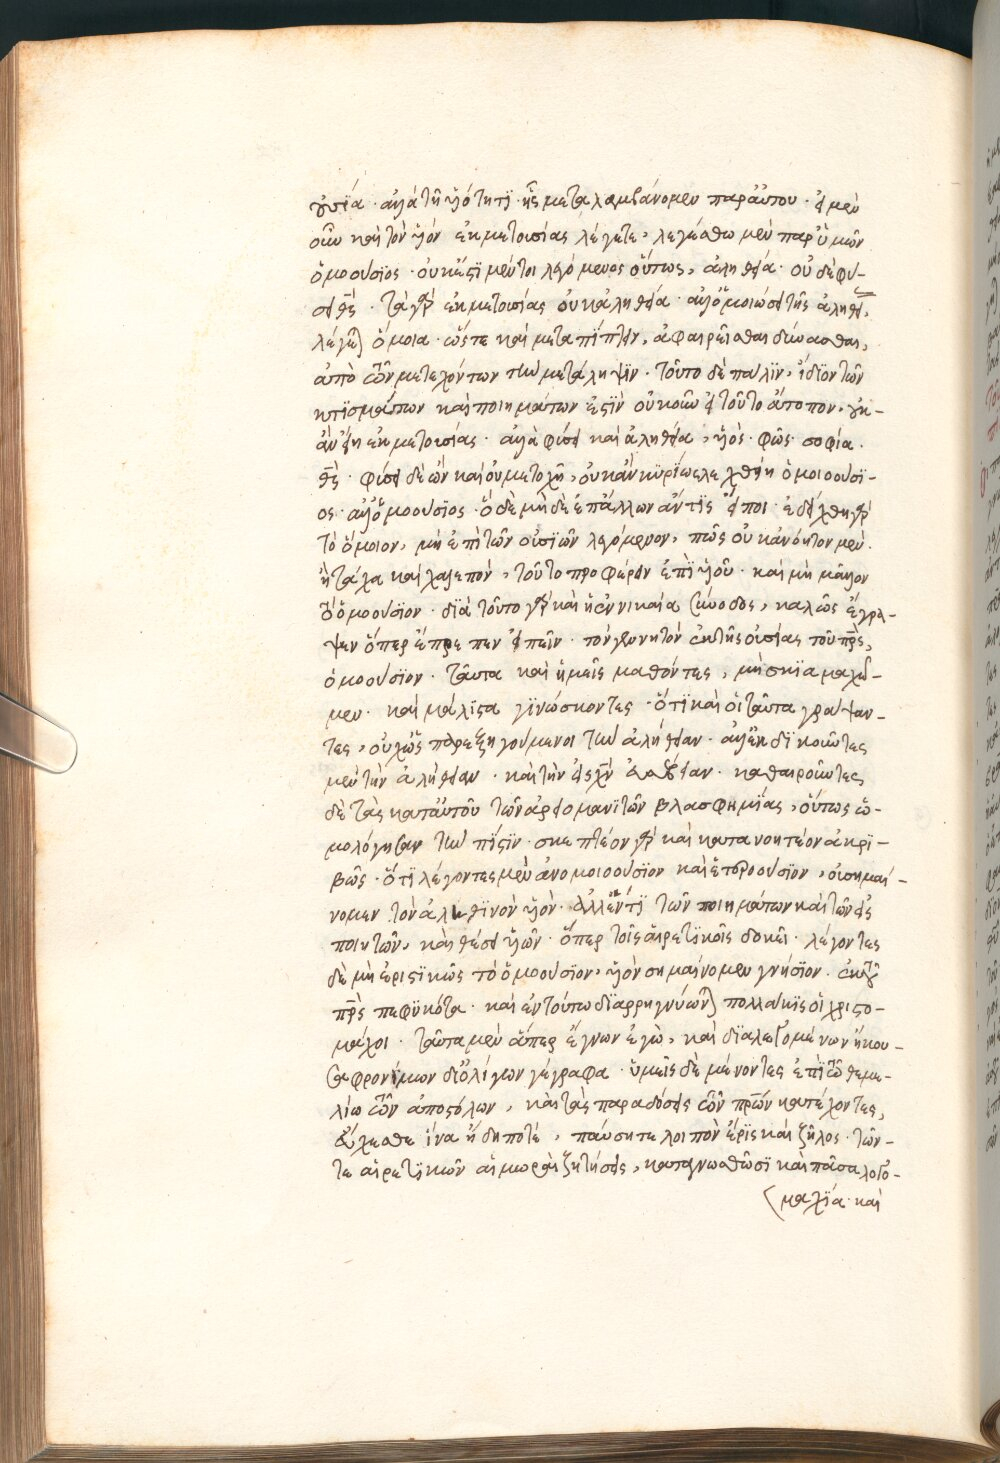 οὐσία· ἀλλὰ τῆ υἱότητι· ἧς μεταλαμβάνομεν παρ' αὐτοῦ· εἰ μὲν
οὖν καὶ τὸν υἱὸν ἐκ μετουσίας λέγετε, λεγέσθω μὲν παρ' ὑμῶν
ὁμοιούσιος· οὐκ ἔστι μέντοι λεγόμενος οὕτως, ἀλήθεια· οὐδὲ φύ-
σει θς· τὰ γὰρ ἐκ μετουσίας οὐκ ἀλήθεια· ἀλλ' ὁμοιώσει τῆς ἀληθείας,
λέγεται ὅμοια· ὥστε καὶ μεταπίπτειν, ἀφαιρεῖσθαι δύνασθαι,
ἀπὸ τῶν μετεχόντων τὴν μετάληψιν· τοῦτο δὲ πάλιν, ἴδιον τῶν
κτισμάτων καὶ ποιημάτων ἐστὶν οὐκοῦν εἰ τοῦτο ἄτοπον, οὐκ-
ἂν εἴη ἐκ μετουσίας· ἀλλὰ φύσει καὶ ἀλήθεια, υἱὸς· φῶς· σοφία·
θς· φύσει δὲ ὢν καὶ οὐ μετοχῆ, οὐκ ἂν κυρίως λεχθείη ὁμοιούσι-
ος· ἀλλ' ὁμοούσιος· ὃ δὲ μηδὲ ἐπ' ἄλλων ἄν τις εἴποι· ἐδείχθη γὰρ
τὸ ὅμοιον, μὴ ἐπὶ τῶν οὐσιῶν λεγόμενον, πῶς οὐκ ἀνόητον μὲν·
ἢ τάχα καὶ χαλεπὸν, τοῦτο προφέρειν ἐπὶ υἱοῦ· καὶ μὴ μᾶλλον
τὸ ὁμοούσιον· διὰ τοῦτο γὰρ καὶ ἡ ἐν νικαία σύνοδος, καλῶς ἔγρα-
ψεν ὅπερ ἔπρεπεν εἰπεῖν· τὸν γεννητὸν ἐκ τῆς οὐσίας τοῦ πρς,
ὁμοούσιον· ταῦτα καὶ ἡμεῖς μαθόντες, μὴ σκιαμαχῶ-
μεν· καὶ μάλιστα γινώσκοντες· ὅτι καὶ οἱ ταῦτα γράψαν-
τες, οὐχ ὡς παρεξηγούμενοι τὴν ἀλήθειαν· ἀλλ' ἐκδικοῦντες
μὲν τὴν ἀλήθειαν· καὶ τὴν εἰς χν εὐσέβειαν· καθαιροῦντες
δὲ τὰς κατ' αὐτοῦ τῶν ἀρειομανιτῶν βλασφημίας, οὕτως ὡ-
μολόγησαν τὴν πίστιν· σκεπτέον γὰρ καὶ κατανοητέον ἀκρι-
βῶς· ὅτι λέγοντες μὲν ἀνομοιοούσιον καὶ ἑτεροούσιον, οὐ σημαί-
νομεν τὸν ἀληθινὸν υἱὸν· ἀλλ' ἕν τι τῶν ποιημάτων καὶ τῶν εἰσ
ποιητῶν, καὶ θέσει υἱῶν· ὅπερ τοῖς αἱρετικοῖς δοκεῖ· λέγοντες
δὲ μὴ ἐριστικῶς τὸ ὁμοούσιον, υἱὸν σημαίνομεν γνήσιον· ἐκ τοῦ
πρς πεφυκότα· καὶ ἐν τούτω διαρρηγνύωνται πολλάκις οἱ χριστο-
μάχοι· ταῦτα μὲν ἅπερ ἔγνων ἐγὼ, καὶ διαλεγομένων ἤκου-
σα φρονίμων δι' ὀλίγων γέγραφα· ὑμεῖς δὲ μένοντες ἐπὶ τῶ θεμε-
λίω τῶν ἀποστόλων, καὶ τὰς παραδόσεις τῶν πρων κατέχοντες,
εὔχεσθε ἵνα ἤδη ποτὲ, παύσηται λοιπὸν ἔρις καὶ ζῆλος· τῶν-
τε αἱρετικῶν αἱ μωραὶ ζητήσεις, καταγνωσθῶσι καὶ πᾶσα λογο-
μαχία· καὶ